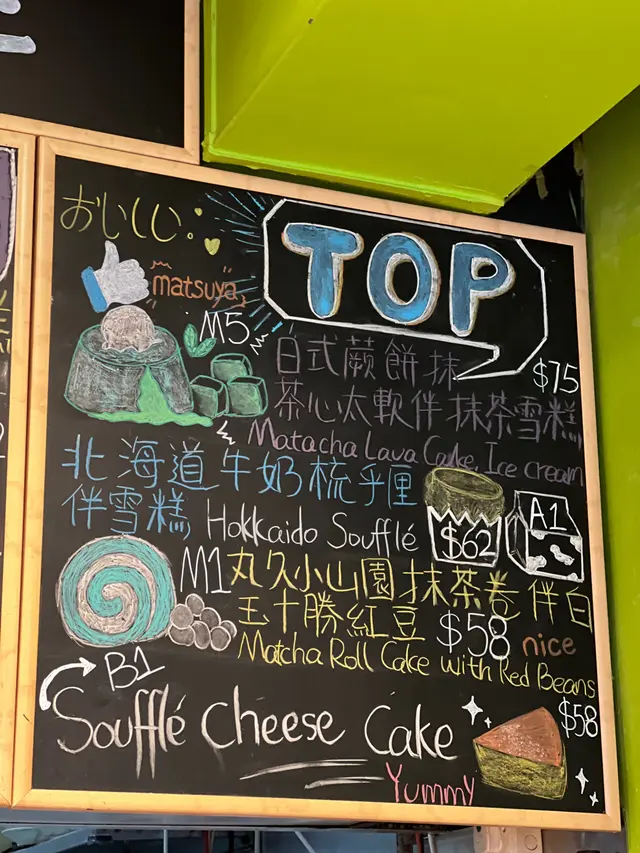 おいしい
TOP
matsuya
M5
日式蕨餅抹 $75
茶心太軟伴抹茶雪糕
Matacha Lava Cake, Ice cream
北海道牛奶梳乎厘
伴雪糕 Hokkaido Soufflé $62 A1
M1 丸久小山園抹茶卷伴白
玉十勝紅豆 $58 nice
Matcha Roll Cake with Red Beans
B1 $58
Soufflé Cheese Cake
Yummy